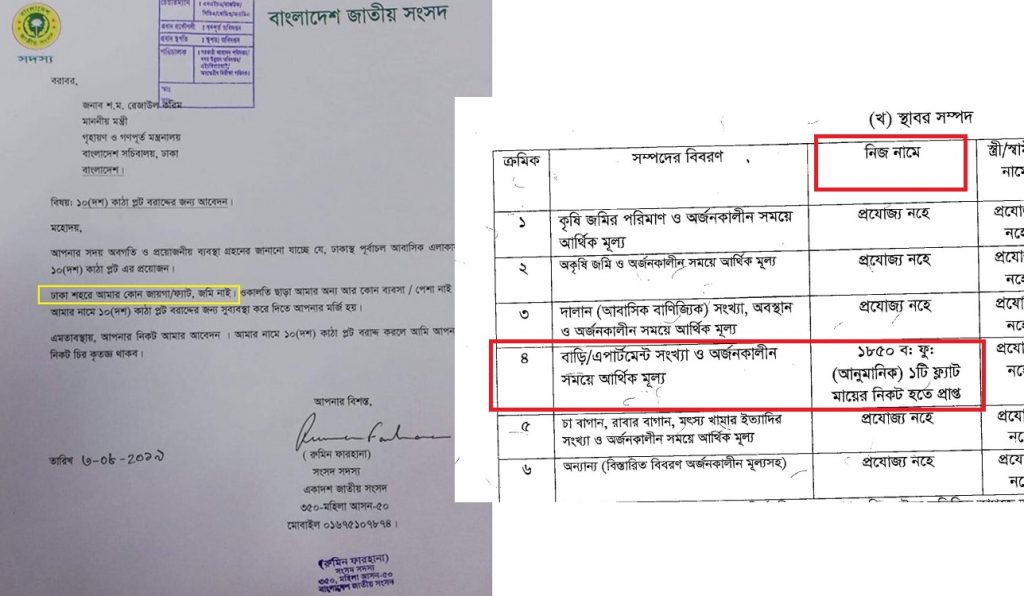 বাংলাদেশ জাতীয় সংসদ
সদস্য
চেয়ারম্যান
প্রধান প্রকৌশলী
প্রধান স্থপতি
পরিচালক
বরাবর,
জনাব শ.ম. রেজাউল করিম
মাননীয় মন্ত্রী
গৃহায়ণ ও গণপূর্ত মন্ত্রনালয়
বাংলাদেশ সচিবালয়, ঢাকা
বাংলাদেশ।
বিষয়: ১০(দশ) কাঠা প্লট বরাদ্দের জন্য আবেদন।
মহোদয়,
আপনার সদয় অবগতি ও প্রয়োজনীয় ব্যবস্থা গ্রহনের জানানো যাচ্ছে যে, ঢাকাস্থ পূর্বাচল আবাসিক এলাকা
১০(দশ) কাঠা প্লট এর প্রয়োজন।
ঢাকা শহরে আমার কোন জায়গা/ফ্যাট, জমি নাই। ওকালতি ছাড়া আমার অন্য আর কোন ব্যবসা / পেশা নাই
আমার নামে ১০(দশ) কাঠা প্লট বরাদ্দের জন্য সুব্যবস্থা করে দিতে আপনার মর্জি হয়।
এমতাবস্থায়, আপনার নিকট আমার আবেদন । আমার নামে ১০(দশ) কাঠা প্লট বরাদ্দ করলে আমি আপন
নিকট চির কৃতজ্ঞ থাকব।
আপনার বিশস্ত,
( রুমিন ফারহানা)
তারিখ
সংসদ সদস্য
একাদশ জাতীয় সংসদ
৩৫০-মহিলা আসন-৫০
মোবাইল ০১৬৭৫১০৭৮৭৪।
(রুমিন ফারহানা)
সংসদ সদস্য
৩৫০, মহিলা আসন-৫০
বাংলাদেশ জাতীয় সংসদ
(খ) স্থাবর সম্পদ
ক্রমিক সম্পদের বিবরণ নিজ নামে স্ত্রী/স্বা
নামে
১ কৃষি জমির পরিমাণ ও অর্জনকালীন সময়ে প্রযোজ্য নহে প্রযো
আর্থিক মূল্য নহে
২ অকৃষি জমি ও অর্জনকালীন সময়ে আর্থিক মূল্য প্রযোজ্য নহে প্রযো
নহে
৩ দালান (আবাসিক বাণিজ্যিক) সংখ্যা, অবস্থান প্রযোজ্য নহে প্রযো
ও অর্জনকালীন সময়ে আর্থিক মূল্য নহে
৪ বাড়ি/এপার্টমেন্ট সংখ্যা ও অর্জনকালীন ১৮৫০ ব: ফু: প্রযো
সময়ে আর্থিক মূল্য (আনুমানিক) ১টি ফ্ল্যাট নহে
মায়ের নিকট হতে প্রাপ্ত
৫ চা বাগান, রাবার বাগান, মৎস্য খামার ইত্যাদির প্রযোজ্য নহে প্রযো
সংখ্যা ও অর্জনকালীন সময়ে আর্থিক মূল্য নহে
৬ অন্যান্য (বিস্তারিত বিবরণ অর্জনকালীন মূল্যসহ) প্রযোজ্য নহে প্রযো
নহে